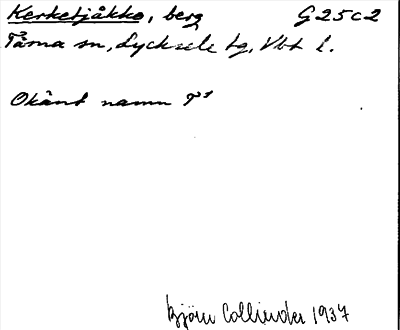 Kerketjåkko, berg G25c2
Tärna sn, Lycksele tg, Vbt l.
Okänt namn
Björn Collinder 1937